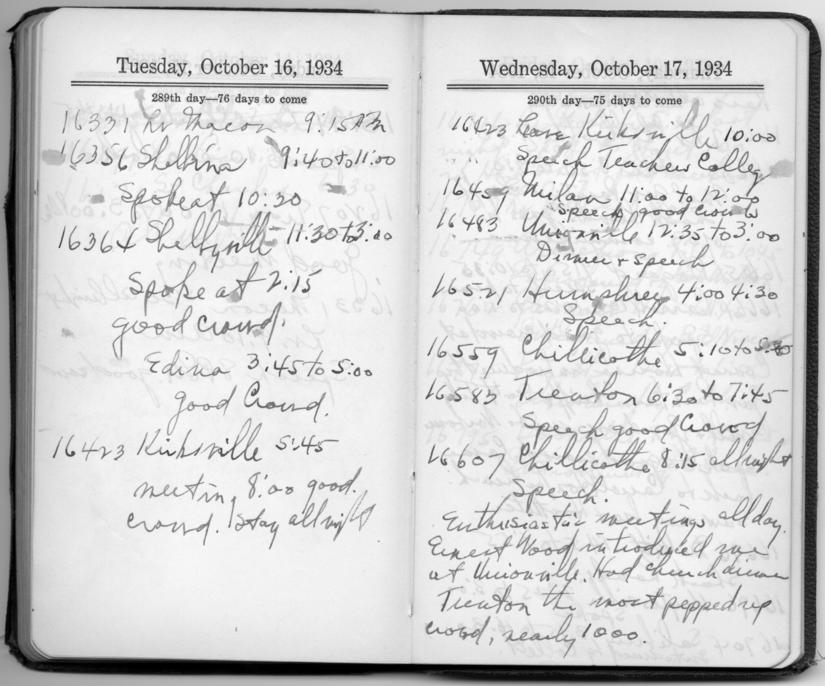 Tuesday, October 16, 1934
289th day—76 days to come
16331 Lv Macon 9:15 AM
16356 Shelbina 9:40 to 11:00
Spoke at 10:30
16364 Shelbyville 11:30 to 3:00
Spoke at 2:15
good crowd.
Edina 3:45 to 5:00
good Crowd.
16423 Kirksville 5:45
meeting 8:00 good.
crowd. Stay all night
Wednesday, October 17, 1934
290th day—75 days to come
16423 Leave Kirksville 10:00
Speech Teachers College
16459 Milan 11:00 to 12:00
Speech good crowd
16483 Unionville 12:35 to 3:00
Dinner + speech
16521 Humphrey 4:00 4:30
Speech.
16559 Chillicothe 5:10 to
16583 Trenton 6:30 to 7:45
Speech good Crowd
16607 Chillicothe 8:15 all night
Speech.
Enthusiastic meetings all day.
Ernest Wood introduced me
at Unionville. Had church dinner
Trenton the most pepped up
crowd, nearly 1000.